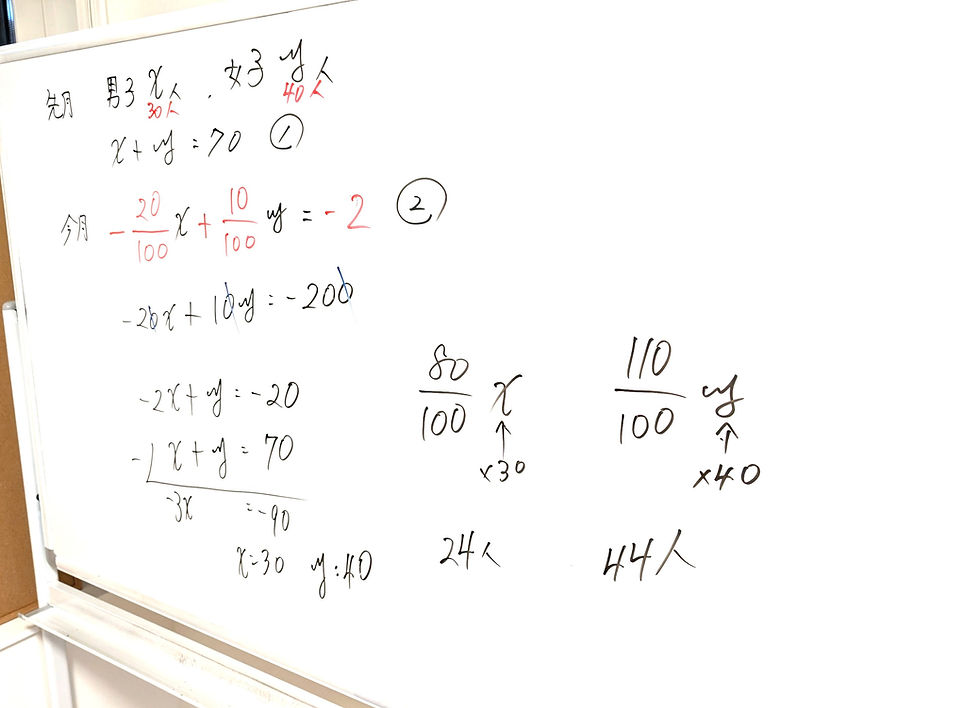 先月 男子 x人 , 女子 y人
30人 40人
x + y = 70 ①
今月 - 20/100 x + 10/100 y = - 2 ②
-20x + 10y = -200
-2x + y = -20
-) x + y = 70
-3x = -90
x=30 y=40
80/100 x 110/100 y
↑ ↑
×30 ×40
24人 44人